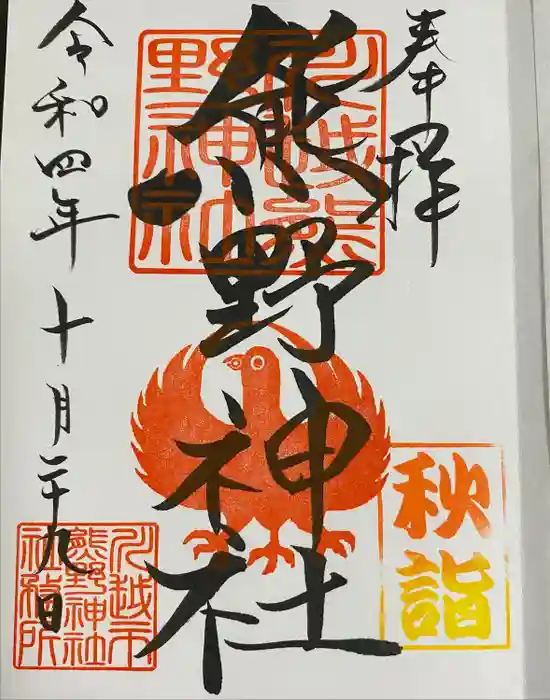 奉拝
熊野神社
川越熊
野神社
秋詣
令和四年十月二十九日
川越市
熊野神社
社務所